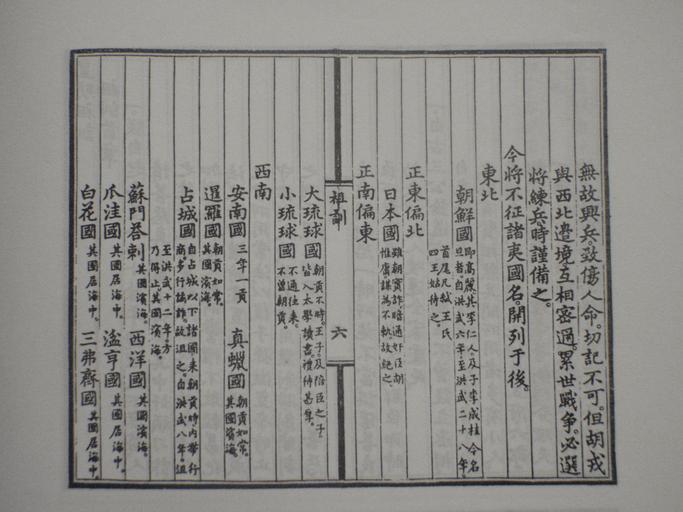 無故興兵。致傷人命。切記不可。但胡戎
與西北邊境互相密邇。累世戰爭。必選
將練兵。時謹備之。
今將不征諸夷國名。開列于後。
東北
朝鮮國 即高麗。其李仁人。及子李成桂今名
旦者。自洪武六年。至洪武二十八年。
首尾凡弒王氏
四王。姑待之。
正東偏北
日本國 雖朝實詐。暗通奸臣胡
惟庸。謀為不軌。故絕之。
正南偏東
祖訓
六
大琉球國 朝貢不時。王子及陪臣之子。
皆入太學讀書。禮待甚厚。
小琉球國 不通往來。
不曾朝貢。
西南
安南國 三年一貢
真蠟國 朝貢如常。
其國濱海。
暹羅國 朝貢如常。
其國濱海。
占城國 自占城以下諸國來朝貢時。內帶行
商。多行譎詐。故沮之。自洪武八年。沮
至洪武十二年。方
乃得止。其國濱海。
蘇門荅剌 其國濱海。
西洋國 其國濱海。
爪洼國 其國居海中。
湓亨國 其國居海中。
白花國 其國居海中。
三弗齊國 其國居海中。